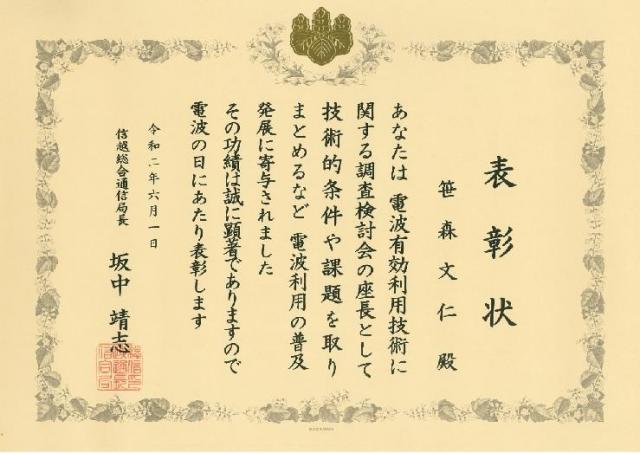 表彰状
笹森文仁殿
あなたは 電波有効利用技術に
関する調査検討会の座長として
技術的条件や課題を取り
まとめるなど 電波利用の普及
発展に寄与されました
その功績は誠に顕著でありますので
電波の日にあたり表彰します
令和二年六月一日
信越総合通信局長
坂中靖志